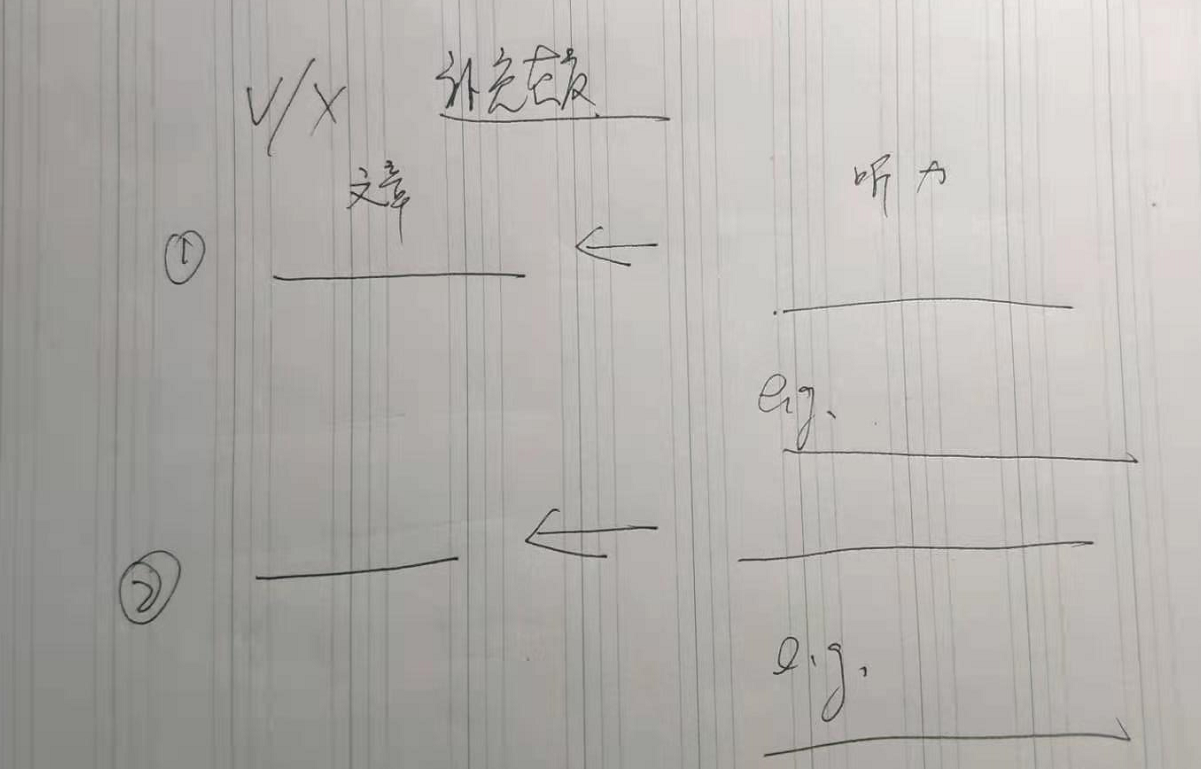 V/X 补充
文章 听力
①
e.g.
②
e.g.